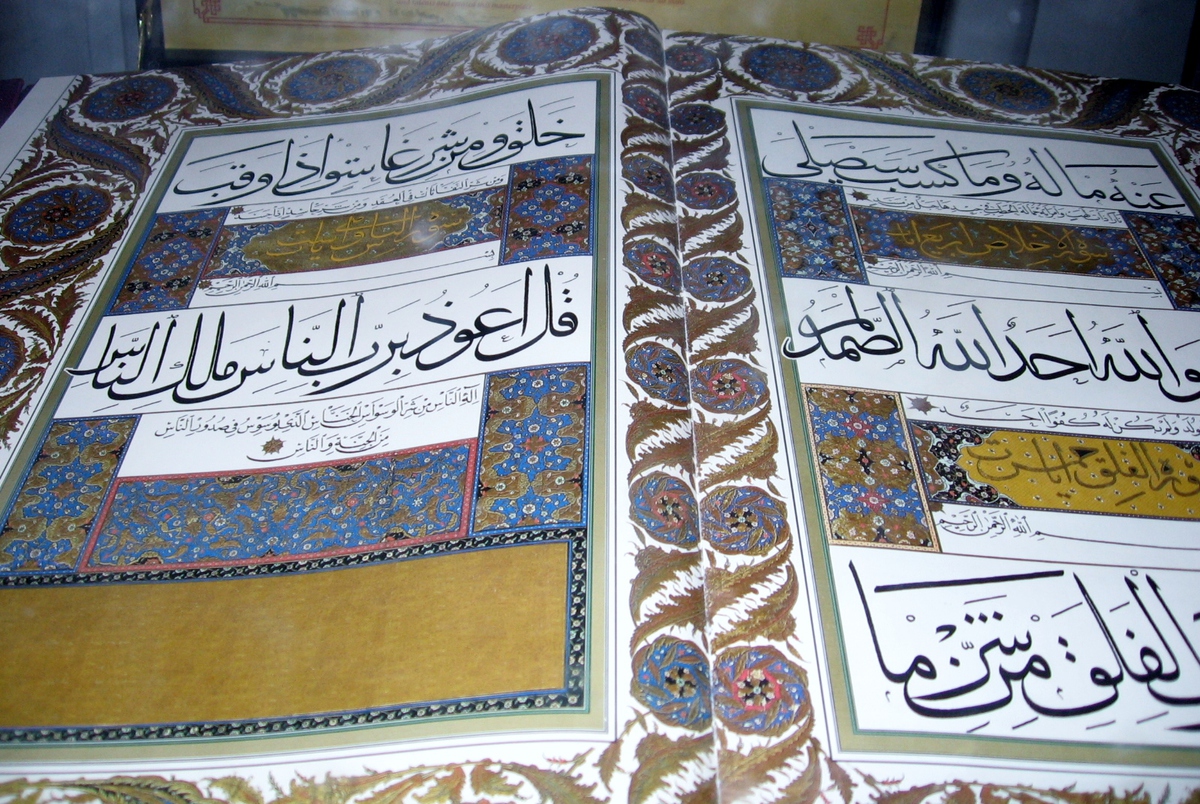 عنه ماله وما كسب سيصلى
ذات لهب وامرأته حمالة الحطب في جيدها حبل من
سورة الاخلاص اربع آيات
الله الرحمن الرحيم
و الله احد الله الصمد
يولد ولم يكن له كفوا احد
سورة الفلق خمس آيات
الله الرحمن الرحيم
الفلق من شر ما
خلق ومن شر غاسق اذا وقب
ومن شر النفاثات في العقد ومن شر حاسد اذا حسد
سورة الناس ست آيات
بسم الله الرحمن الرحيم
قل اعوذ برب الناس مالك الناس
اله الناس من شر الوسواس الخناس الذي يوسوس في صدور الناس
من الجنة والناس